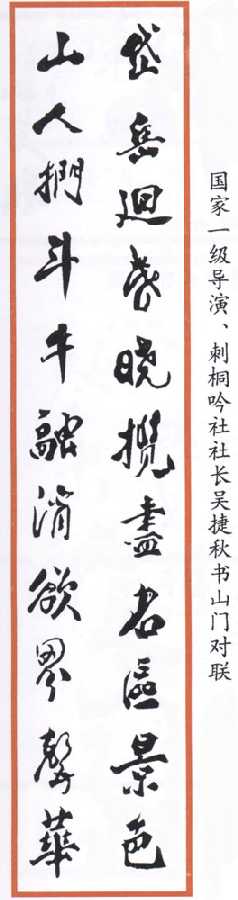 国家一级导演、刺桐吟社社长吴捷秋书山门对联
岱岳迴昏曉攬盡名區景色
山人捫斗牛融消欲界聲華